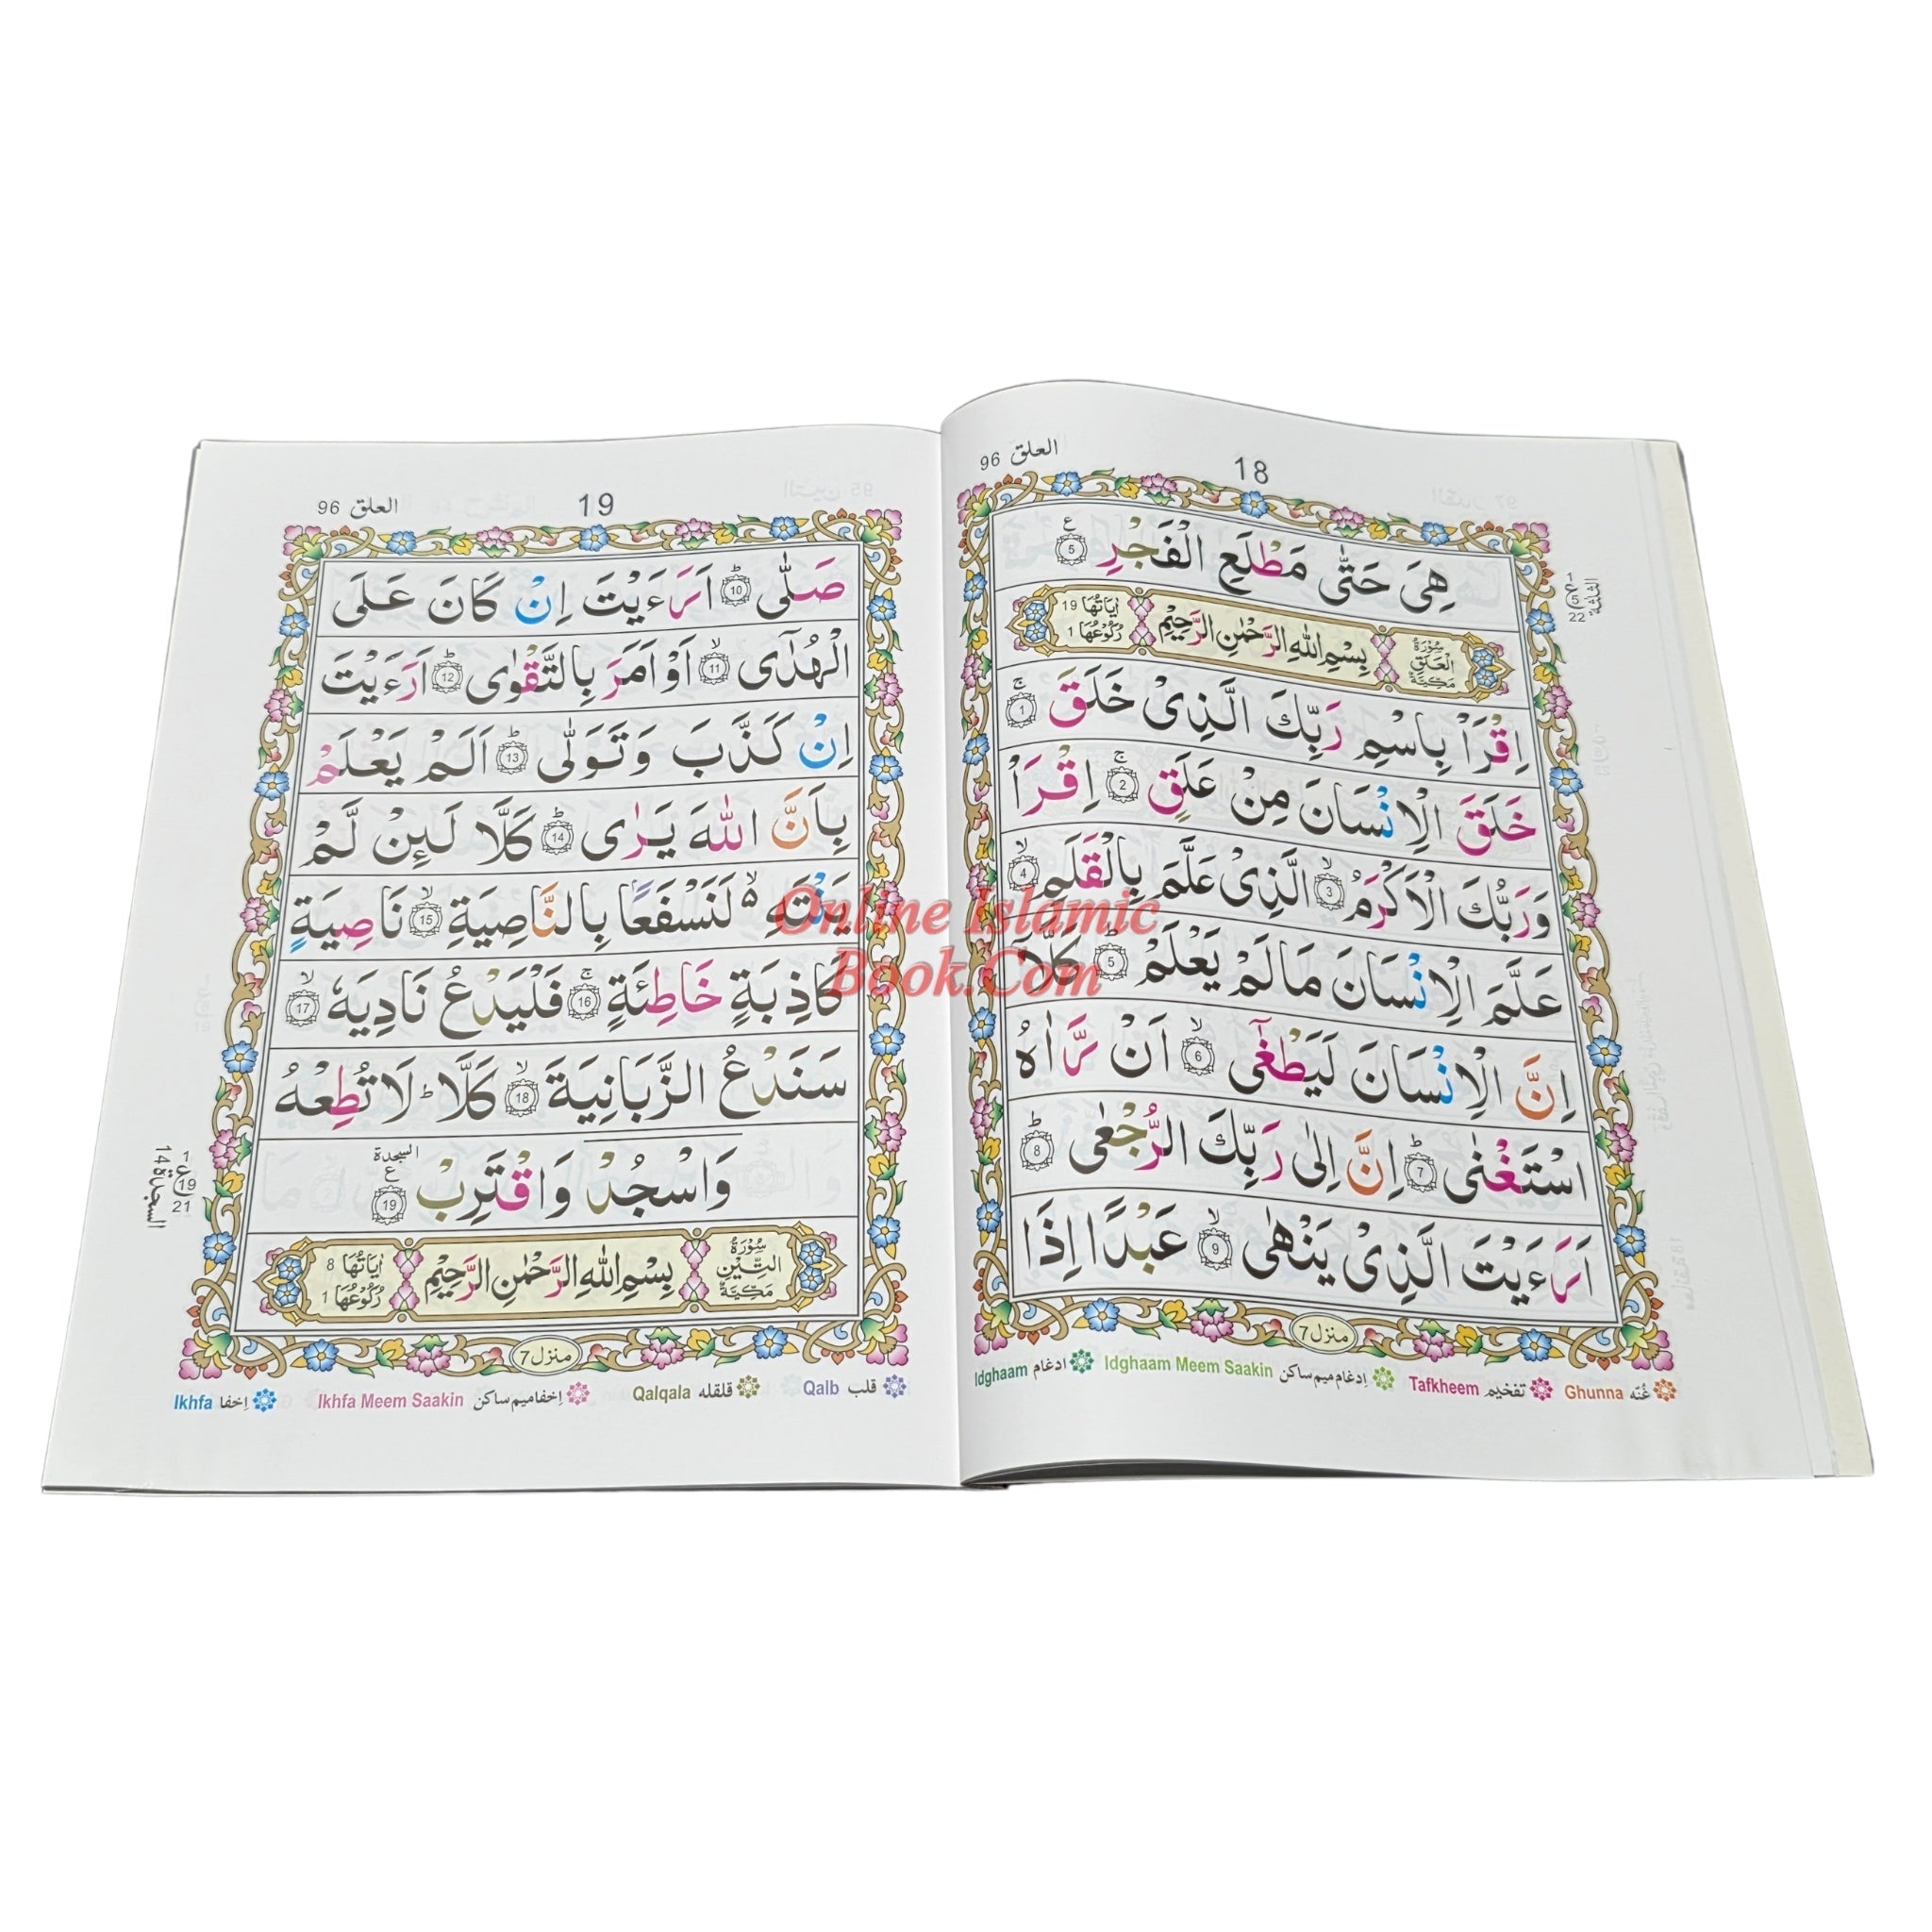 العلق 96
18
هِىَ حَتّٰى مَطْلَعِ الْفَجْرِ ۝5 ع
سُوْرَةُ الْعَلَقِ مَكِّيَّةٌ
بِسْمِ اللّٰهِ الرَّحْمٰنِ الرَّحِيْمِ
اٰيَاتُهَا 19
رُكُوْعُهَا 1
اِقْرَاْ بِاسْمِ رَبِّكَ الَّذِىْ خَلَقَ ۝1ۚ
خَلَقَ الْاِنْسَانَ مِنْ عَلَقٍ ۝2ۚ اِقْرَاْ
وَرَبُّكَ الْاَكْرَمُ ۝3ۙ الَّذِىْ عَلَّمَ بِالْقَلَمِ ۝4ۙ
عَلَّمَ الْاِنْسَانَ مَالَمْ يَعْلَمْ ۝5ؕ كَلَّآ
اِنَّ الْاِنْسَانَ لَيَطْغٰٓى ۝6ۙ اَنْ رَّاٰهُ
اسْتَغْنٰى ۝7ؕ اِنَّ اِلٰى رَبِّكَ الرُّجْعٰى ۝8ؕ
اَرَءَيْتَ الَّذِىْ يَنْهٰى ۝9ۙ عَبْدًا اِذَا
منزل 7
غُنّه Ghunna تفخيم Tafkheem اِدغام ميم ساكن Idghaam Meem Saakin ادغام Idghaam
1 ع 5 22 الثلثة
العلق 96
19
صَلّٰى ۝10ؕ اَرَءَيْتَ اِنْ كَانَ عَلَى
الْهُدٰٓى ۝11ۙ اَوْ اَمَرَ بِالتَّقْوٰى ۝12ؕ اَرَءَيْتَ
اِنْ كَذَّبَ وَتَوَلّٰى ۝13ؕ اَلَمْ يَعْلَمْ
بِاَنَّ اللّٰهَ يَرٰى ۝14ؕ كَلَّا لَىِٕنْ لَّمْ
يَنْتَهِ ۙ۬ لَنَسْفَعًا بِالنَّاصِيَةِ ۝15ۙ نَاصِيَةٍ
كَاذِبَةٍ خَاطِئَةٍ ۝16ۚ فَلْيَدْعُ نَادِيَهٗ ۝17ۙ
سَنَدْعُ الزَّبَانِيَةَ ۝18ۙ كَلَّا ؕ لَا تُطِعْهُ
وَاسْجُدْ وَاقْتَرِبْ ۝19 ع السجدة
سُوْرَةُ التِّيْنِ مَكِّيَّةٌ
بِسْمِ اللّٰهِ الرَّحْمٰنِ الرَّحِيْمِ
اٰيَاتُهَا 8
رُكُوْعُهَا 1
منزل 7
قلب Qalb قلقله Qalqala اِخفا ميم ساكن Ikhfa Meem Saakin اِخفا Ikhfa
1 ع 19 21
السجدة 14
Online Islamic
Book.Com